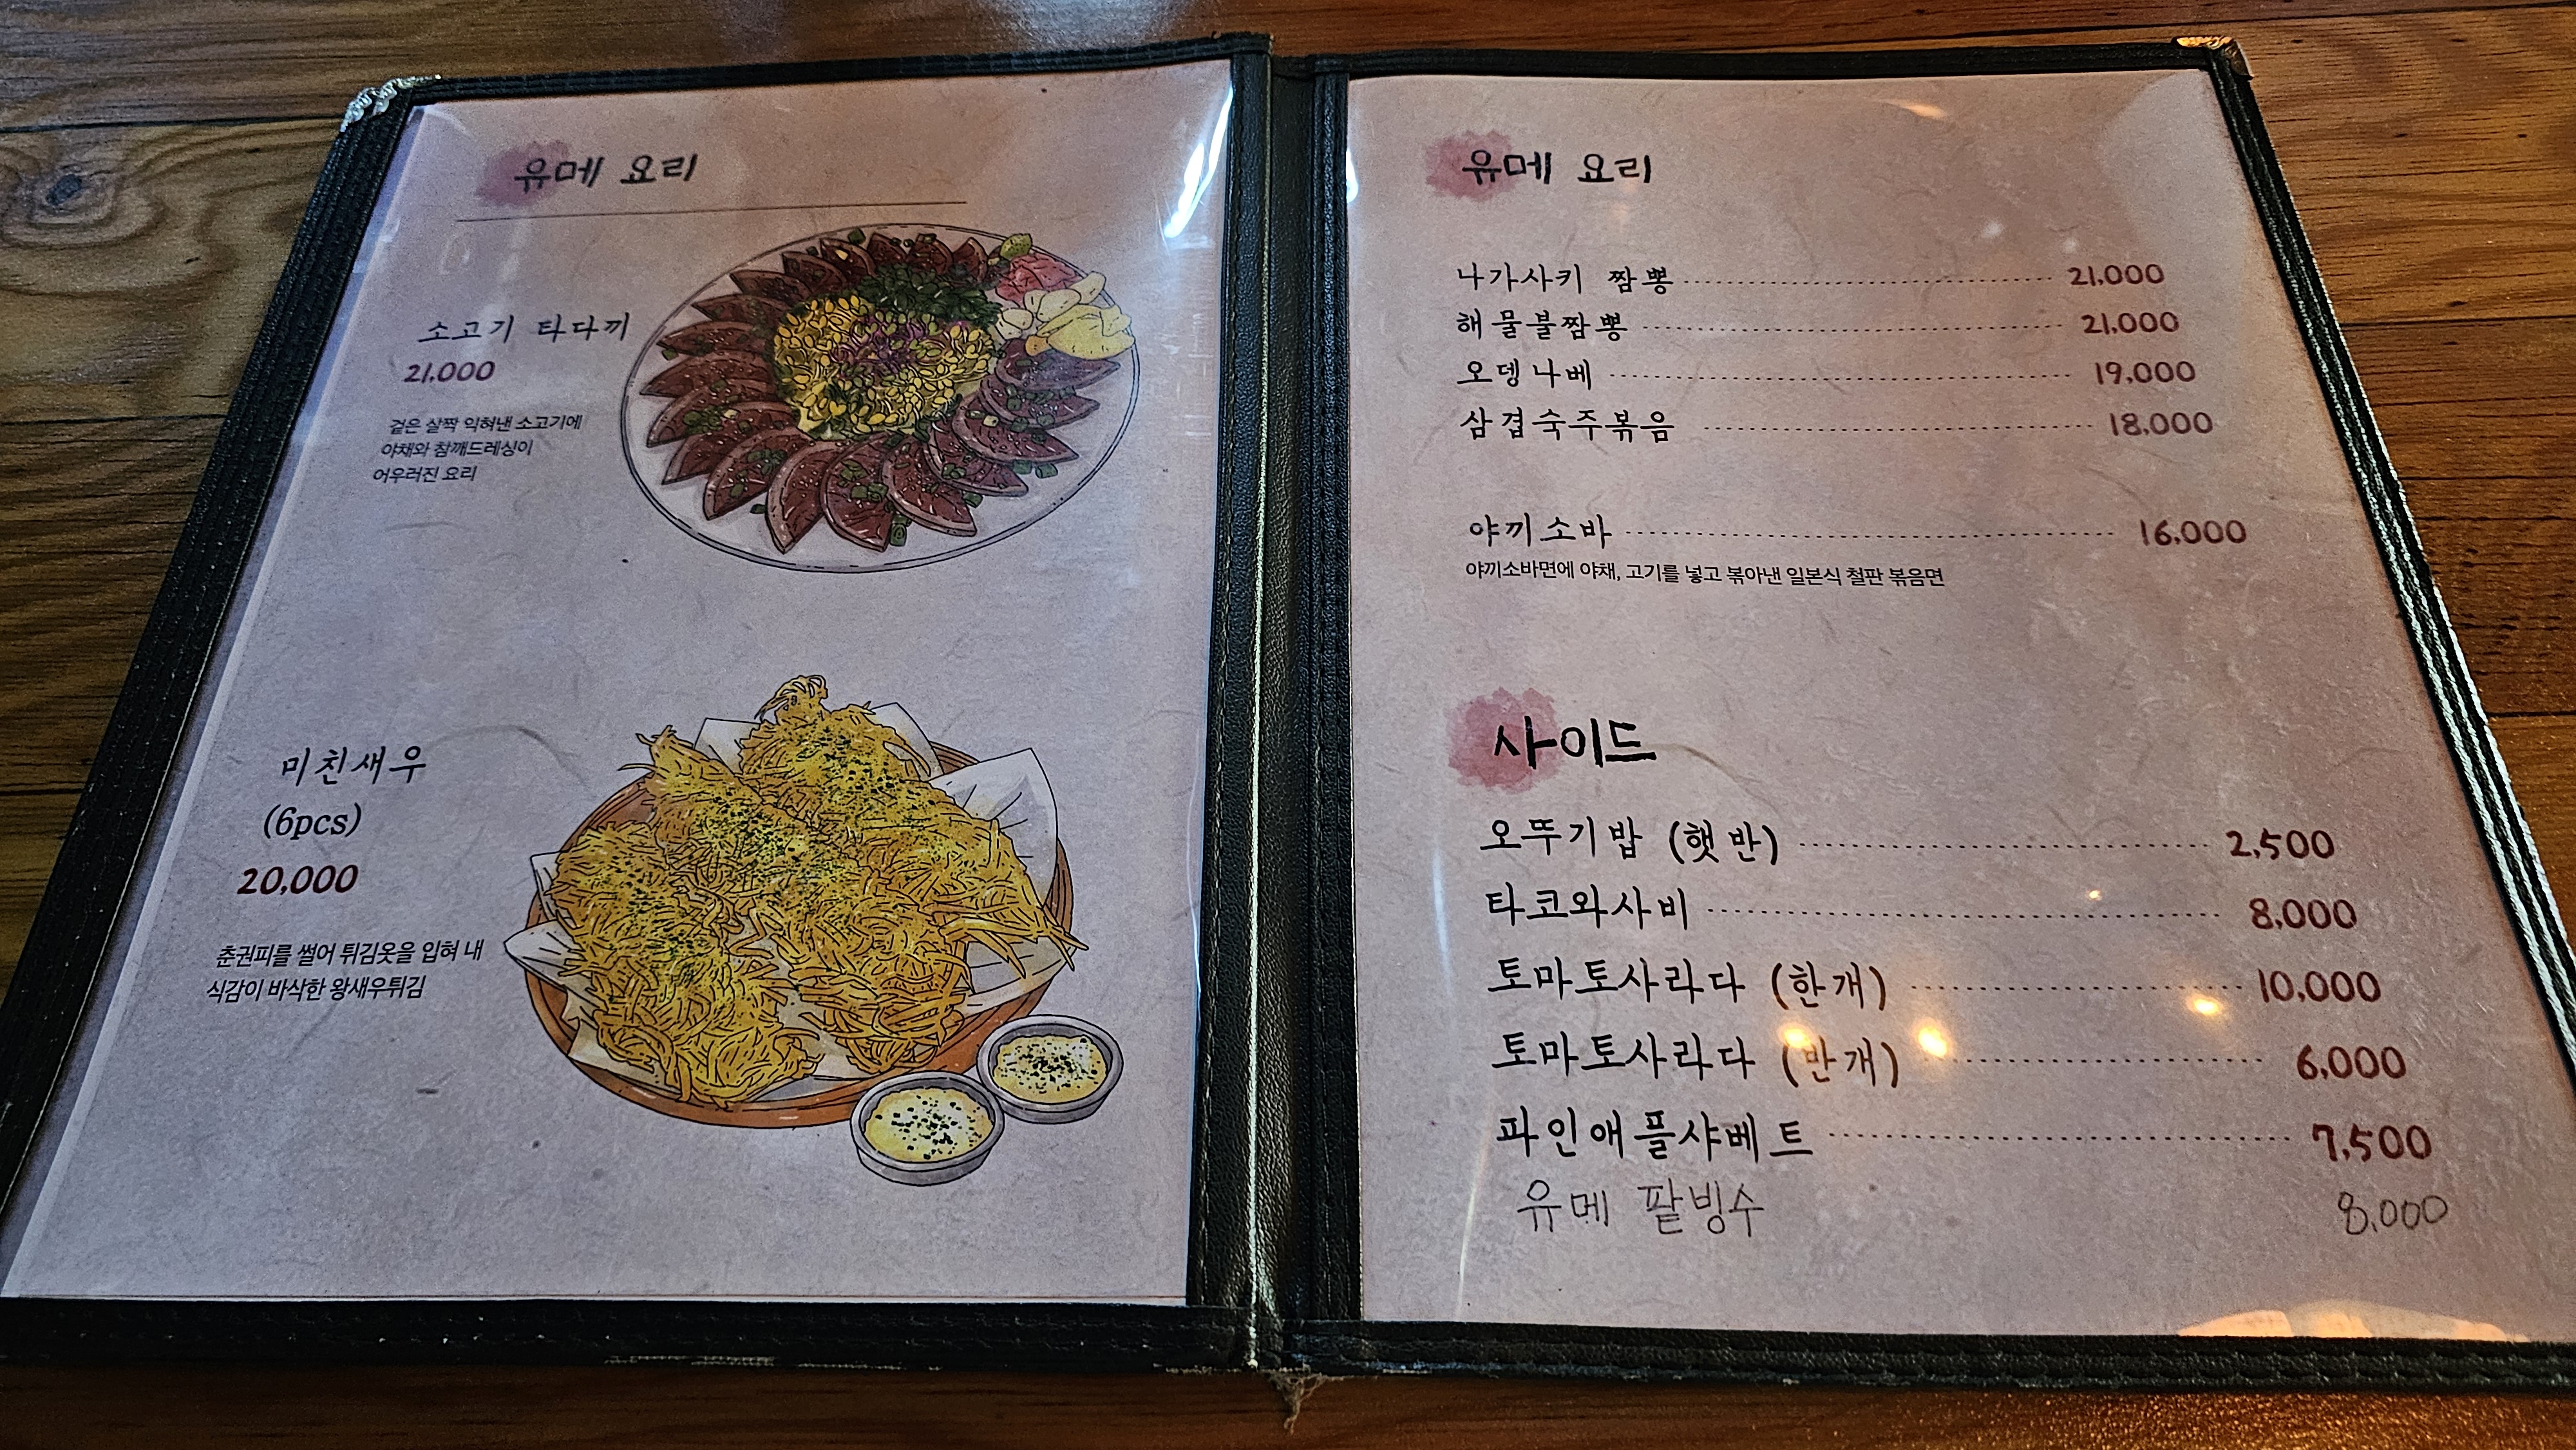 유메 요리
소고기 타다끼
21,000
겉은 살짝 익혀낸 소고기에
야채와 참깨드레싱이
어우러진 요리
미친새우
(6pcs)
20,000
춘권피를 썰어 튀김옷을 입혀 내
식감이 바삭한 왕새우튀김
유메 요리
나가사키 짬뽕 21,000
해물불짬뽕 21,000
오뎅나베 19,000
삼겹숙주볶음 18,000
야끼소바 16,000
야끼소바면에 야채, 고기를 넣고 볶아낸 일본식 철판 볶음면
사이드
오뚜기밥 (햇반) 2,500
타코와사비 8,000
토마토사라다 (한개) 10,000
토마토사라다 (반개) 6,000
파인애플샤베트 7,500
유메 팥빙수 8,000